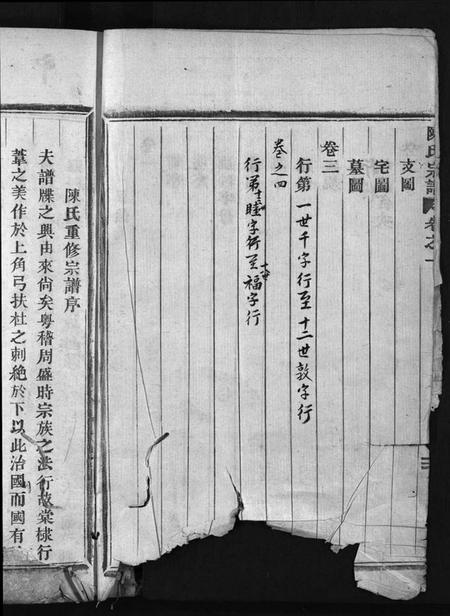 陳氏宗譜 卷之一
支圖
宅圖
墓圖
卷三
行第 一世千字行至十二世敦字行
卷之四
行第十三世睦字行至十世福字行
陳氏重修宗譜序
夫譜牒之興由來尚矣粵稽周盛時宗族之法行故棠棣行
葦之美作於上角弓扶杜之刺絶於下以此治國而國有